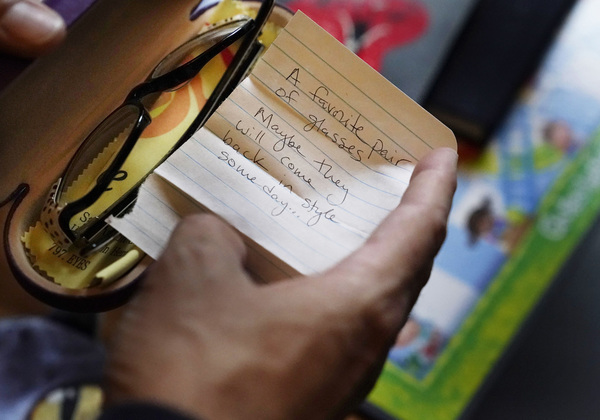 A favorite pair
of glasses
Maybe they
will come
back in style
some day...